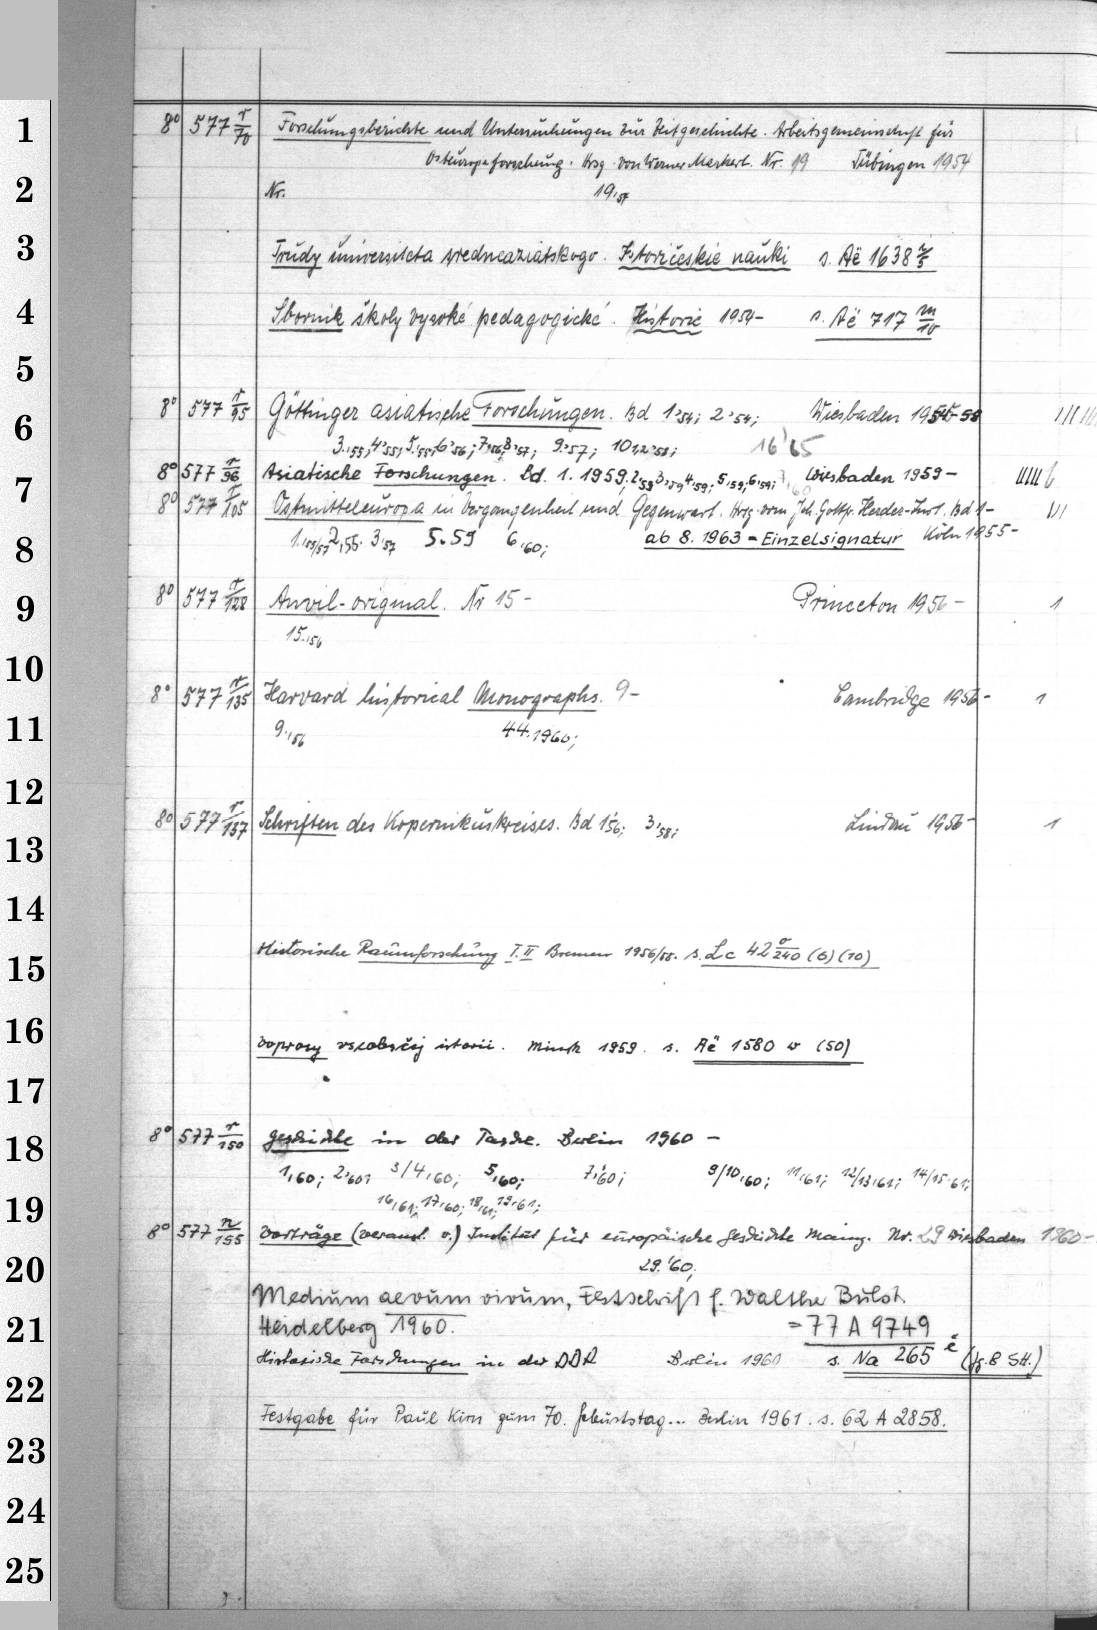 1
8° 577 r/70 Forschungsberichte und Untersuchungen zur Zeitgeschichte. Arbeitsgemeinschaft für
Osteuropaforschung. Hrsg. von Werner Markert. Nr. 19 Tübingen 1954
2
Nr. 19,57
3
Trudy universiteta sredneaziatskogo. Istoričeskie nauki s. Aë 1638
4
Sbornik školy vysoké pedagogické. Historie 1954- s. Aë 717 m/10
5
8° 577 r/95 Göttinger asiatische Forschungen. Bd 1,'54; 2,'54; Wiesbaden 1954-58
6
3,'55; 4,'55; 5,'55; 6,'56; 7,'56; 8,'57; 9,'57; 10,'58; 16,'65
8° 577 r/96 Asiatische Forschungen. Bd. 1. 1959; 2,'59 3,'59 4,'59; 5,'59; 6,'59; Wiesbaden 1959-
7
8° 577 r/105 Ostmitteleuropa in Vergangenheit und Gegenwart. Hrsg. vom Joh. Gottfr. Herder-Inst. Bd 1-
8
2,55. 3,'57 5.59 6,'60; ab 8. 1963 = Einzelsignatur Köln 1955-
9
8° 577 r/128 Anvil-original. Nr 15- Princeton 1956- 1
15,'56
10
8° 577 r/135 Harvard historical Monographs. 9- Cambridge 1956- 1
11
9,'56 44.1960;
12
8° 577 r/137 Schriften des Kopernikuskreises. Bd 1,'56; 3,'58; Lindau 1956- 1
13
14
Historische Raumforschung I.II Bremen 1956/58. s. Lc 42 o/240 (6) (10)
15
16
Voprosy vseobščej istorii. Minsk 1959. s. Aë 1580 w (50)
17
8° 577 r/150 Geschichte in der Tasche. Berlin 1960 -
18
1,60; 2,'60; 3/4,60; 5,60; 7,'60; 9/10,'60; 11,'61; 12/13,'61; 14/15,'61;
19
16,'61; 17,'60; 18,'61; 19,'61;
8° 577 r/155 Vorträge (veranst. v.) Institut für europäische Geschichte Mainz. Nr. 29 Wiesbaden 1960-
20
29.'60;
Medium aevum vivum, Festschrift f. Walther Bulst.
21
Heidelberg 1960. = 77 A 9749
Historische Forschungen in der DDR Berlin 1960 s. Na 265 ë (Jg. 8 SH.)
22
Festgabe für Paul Kirn zum 70. Geburtstag... Berlin 1961. s. 62 A 2858.
23
24
25